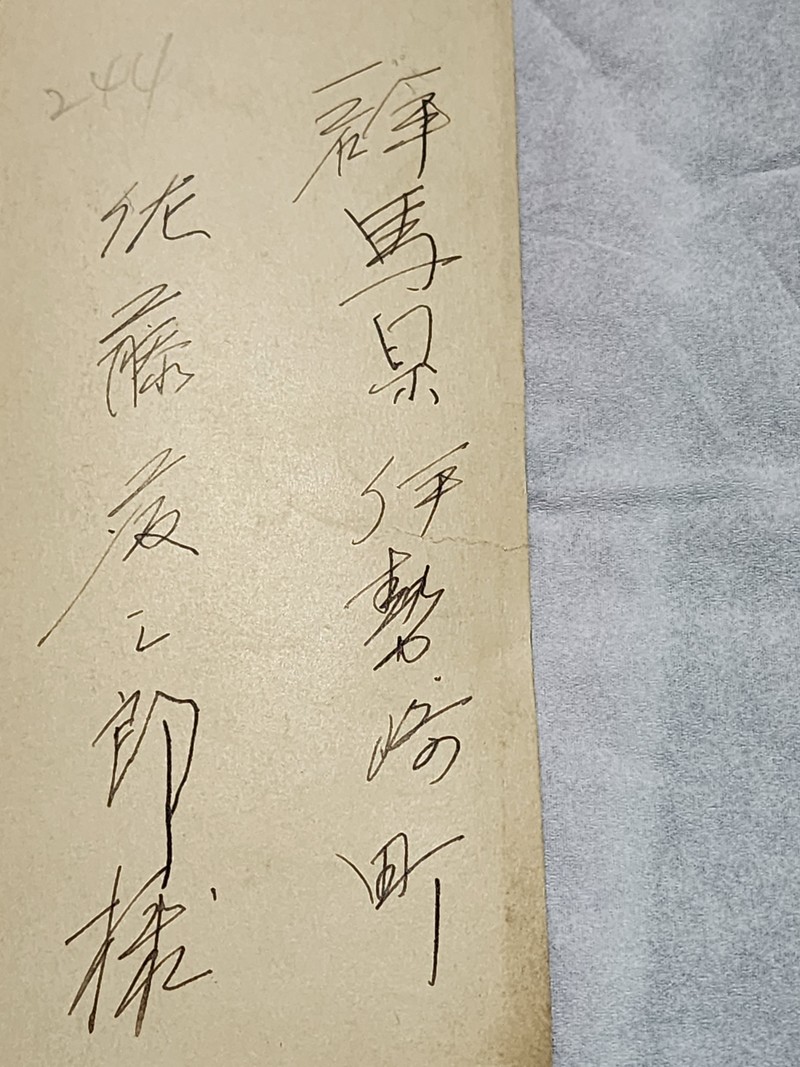 群馬県伊勢崎町
佐藤 郎様
244